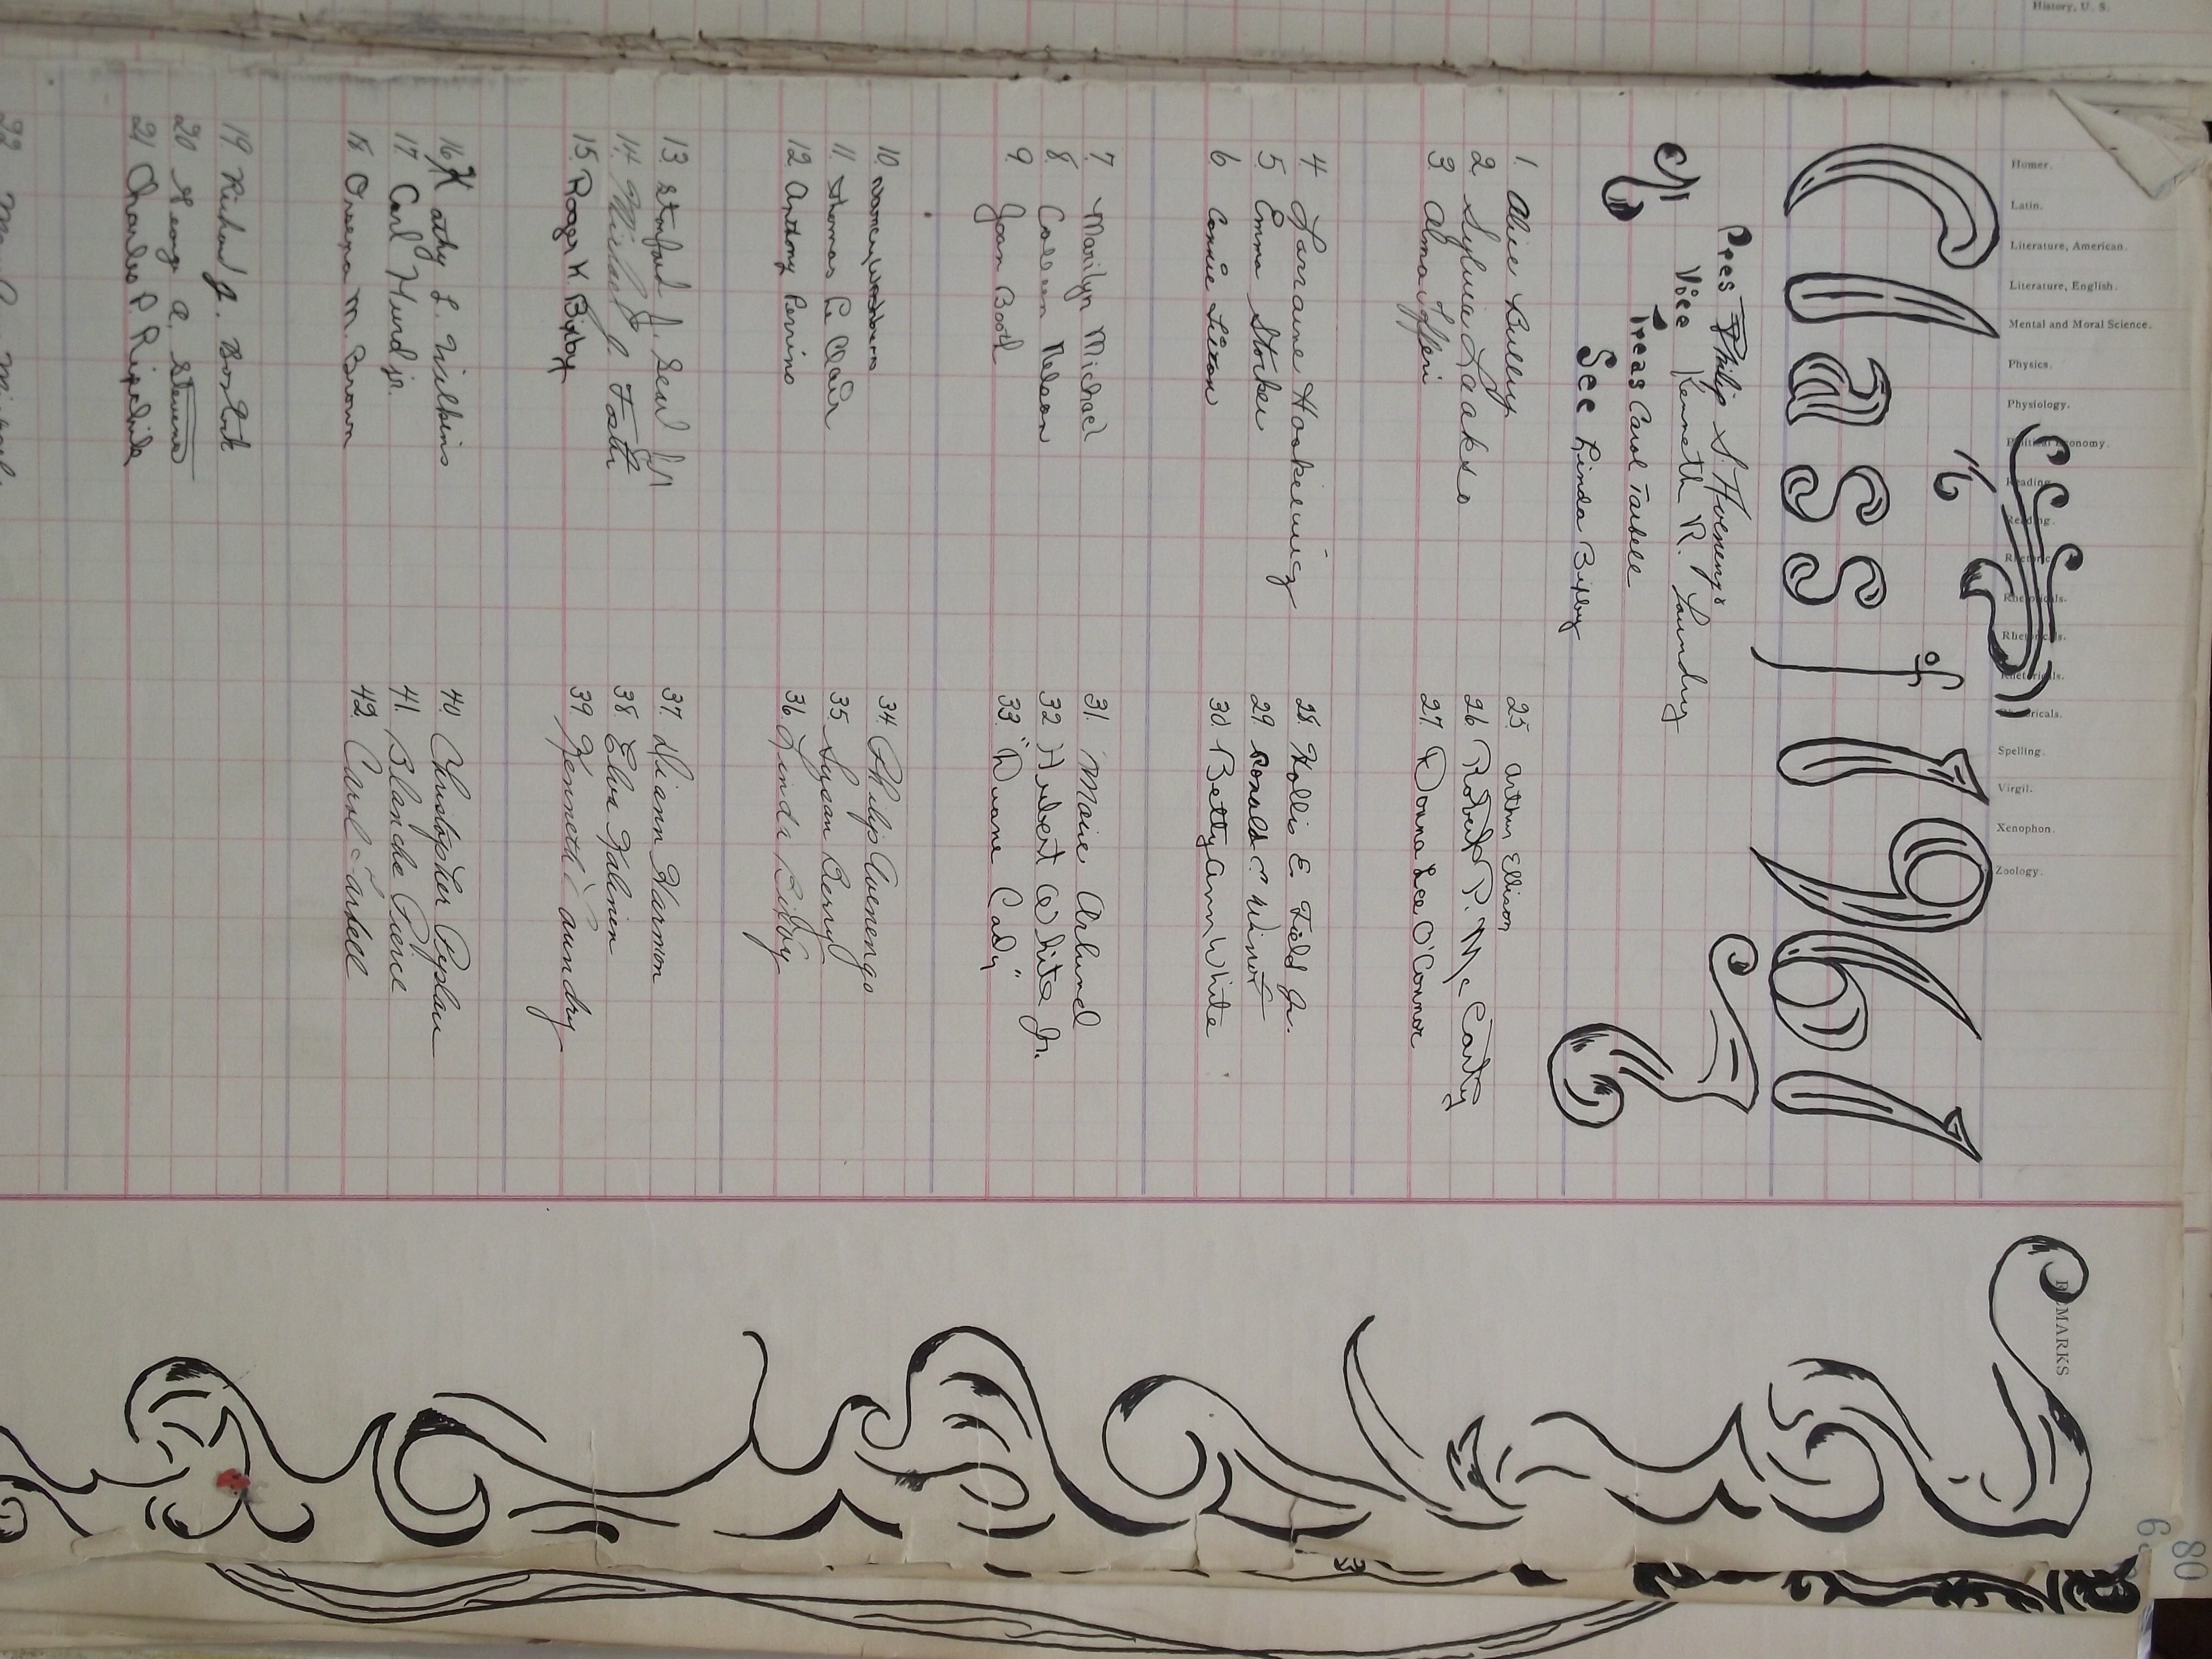 History, U. S.
Homer.
Latin.
Literature, American.
Literature, English.
Mental and Moral Science.
Physics.
Physiology.
Political Economy.
Reading.
Reading.
Rhetoric.
Rhetoricals.
Rhetoricals.
Rhetoricals.
Rhetoricals.
Spelling.
Virgil.
Xenophon.
Zoology.
REMARKS
80
Class of 1961
Pres Philip S.
Vice Kenneth R. Laundry
Treas Carol Tarbell
Sec Linda Bixby
1. Alice
2. Sylvia Laakso
3. Alma
4. Lorraine
5. Emma Stocker
6 Connie
7. Marilyn Michael
8. Colleen Nelson
9. Joan Booth
10. Nancy
11. Thomas Le Clair
12 Anthony Perrino
13. Stanford J.
14. Michael J.
15. Roger K. Bixby
16 Kathy L. Wilkins
17 Carl Hurd jr.
18 M. Brown
19 Richard J.
20 George A. Stevens
21 Charles P.
22
25 Arthur Ellison
26 Robert P. Mc Carty
27. Donna Lee O'Connor
28. Hollis E. Field Jr.
29 Ronald
30. Betty Ann White
31. Marie
32 Hubert White Jr.
33. "Duane Cady"
34. Philip Avenengo
35 Susan Berry
36. Linda Bixby
37. Diann Harmon
38. Elva
39. Kenneth Laundry
40. Christopher
41. Blanche Pierce
42. Carol Tarbell